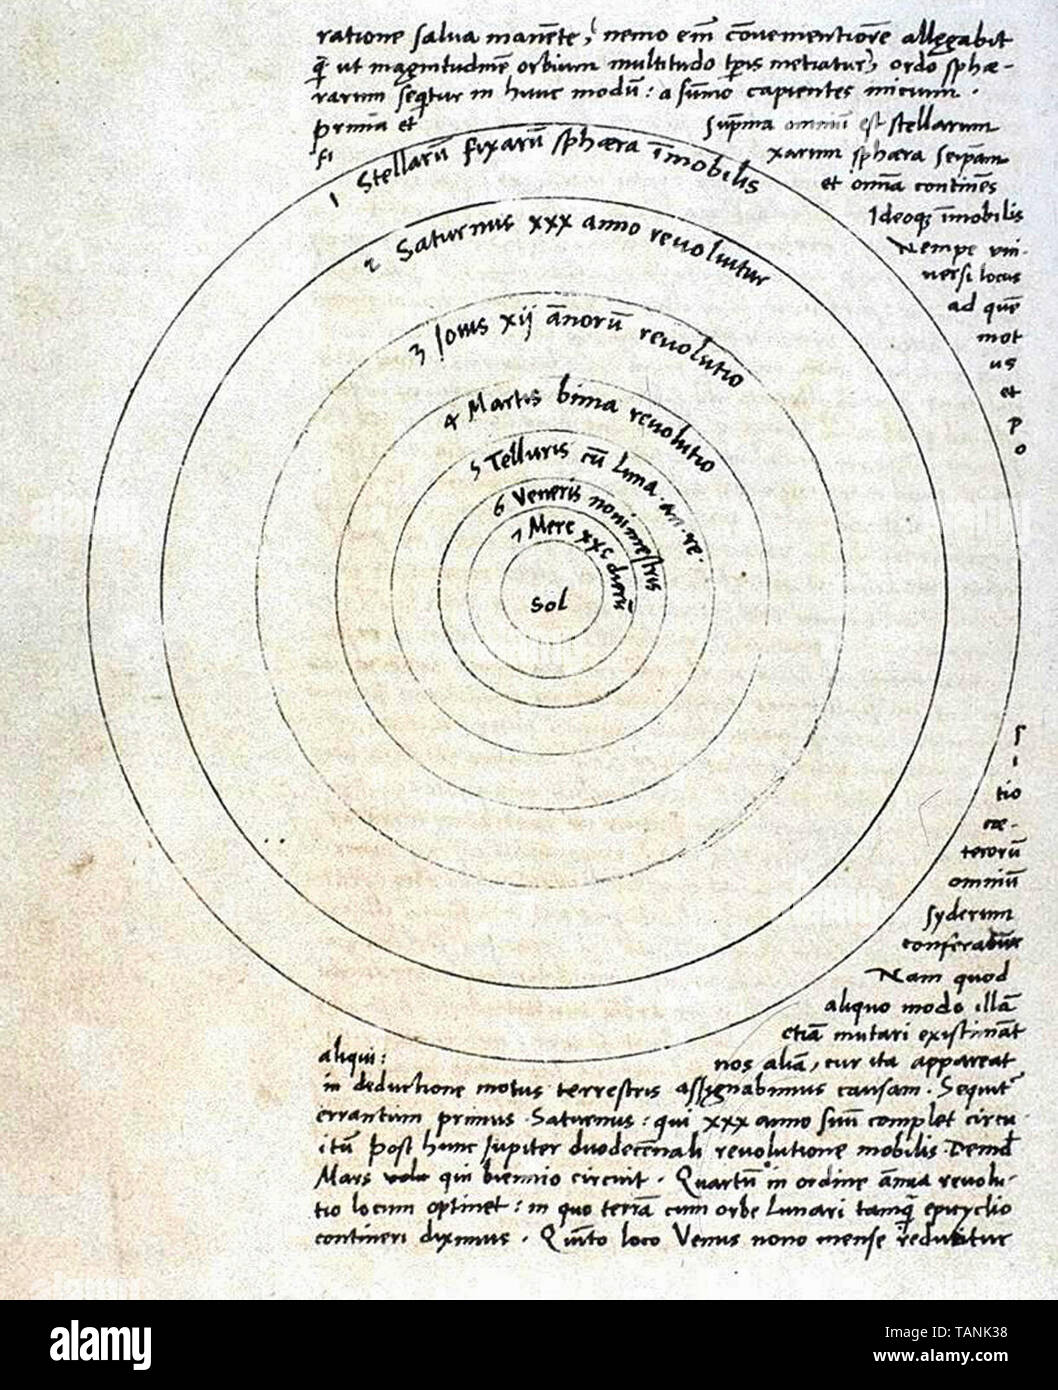 ratione salua manēte, nemo em̄ cōuenientiorē allegabit
q̄ ut magnitudinē orbium multitudo tp̄is metiatur, ordo sphæ-
rarum seq̄tur in hunc modū: a sūmo capientes inicium.
prima et sup̄ma omniū est stellarum
fi xarum sphæra seip̄am
et omnia continēs
Ideoq̨ īmobilis
Nempe uni-
uersi locus
ad quē
mot
us
et
p
o
1 Stellarū fixarū sphæra īmobilis
2 Saturnus xxx anno reuoluitur
3 Iouis xij ānorū reuolutio
4 Martis bima reuolutio
5 Telluris cū Luna. an. re.
6 Veneris nonimestris
7 Merc xxc dierū
Sol
s
i
tio
cæ-
terorū
omniū
syderum
conferatur
Nam quod
aliquo modo illā
etiā mutari existimāt
aliqui: nos aliā, cur ita appareat
in deductione motus terrestris assignabimus causam. Sequit̄
errantium primus Saturnus: qui xxx anno suū complet circu
itū post hunc Iupiter duodecēnali reuolutione mobilis Deind̄
Mars qui biennio circuit. Quartū in ordine ānua reuolu-
tio locum optinet: in quo terrā cum orbe Lunari tamq̄ epicyclio
contineri diximus. Quīto loco Venus nono mense reducitur
alamy
Image ID: TANK38
www.alamy.com